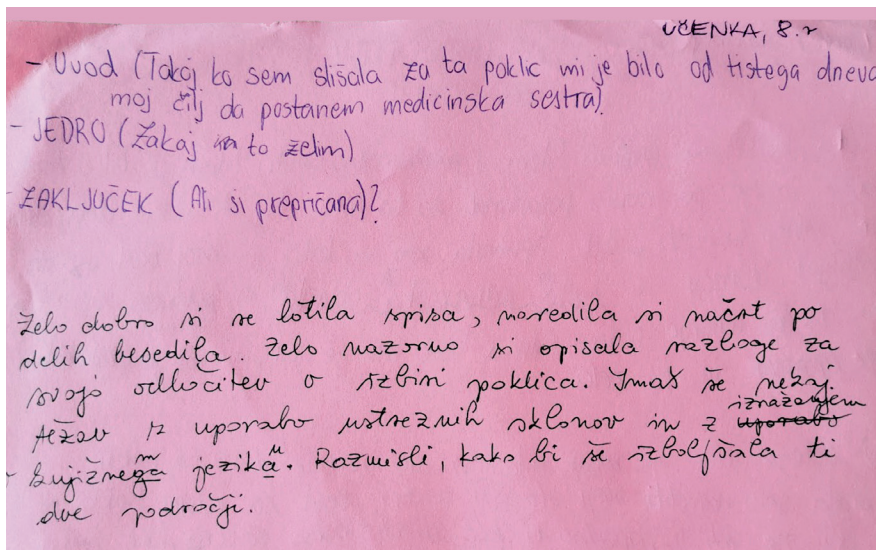 UČENKA, 8.r
- Uvod (Takoj ko sem slišala za ta poklic mi je bilo od tistega dneva
moj cilj da postanem medicinska sestra).
- JEDRO (Zakaj to želim)
- ZAKLJUČEK (Ali si prepričana)?
Zelo dobro si se lotila spisa, naredila si načrt po
delih besedila. Zelo nazorno si opisala razloge za
svojo odločitev o izbiri poklica. Imaš še nekaj
težav z uporabo ustreznih sklonov in z uporabo izražanjem
knjižnega m jezika u. Razmisli, kako bi še izboljšala ti
dve področji.